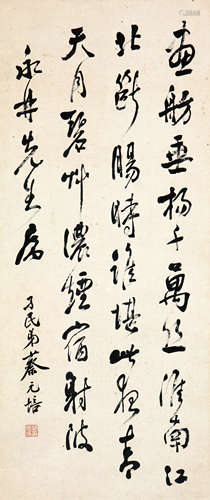 畫舫垂楊千萬絲淮南江
北斷腸時誰堪此夜青
天月碧艸濃煙宿射陂
永井先生属
孑民弟蔡元培